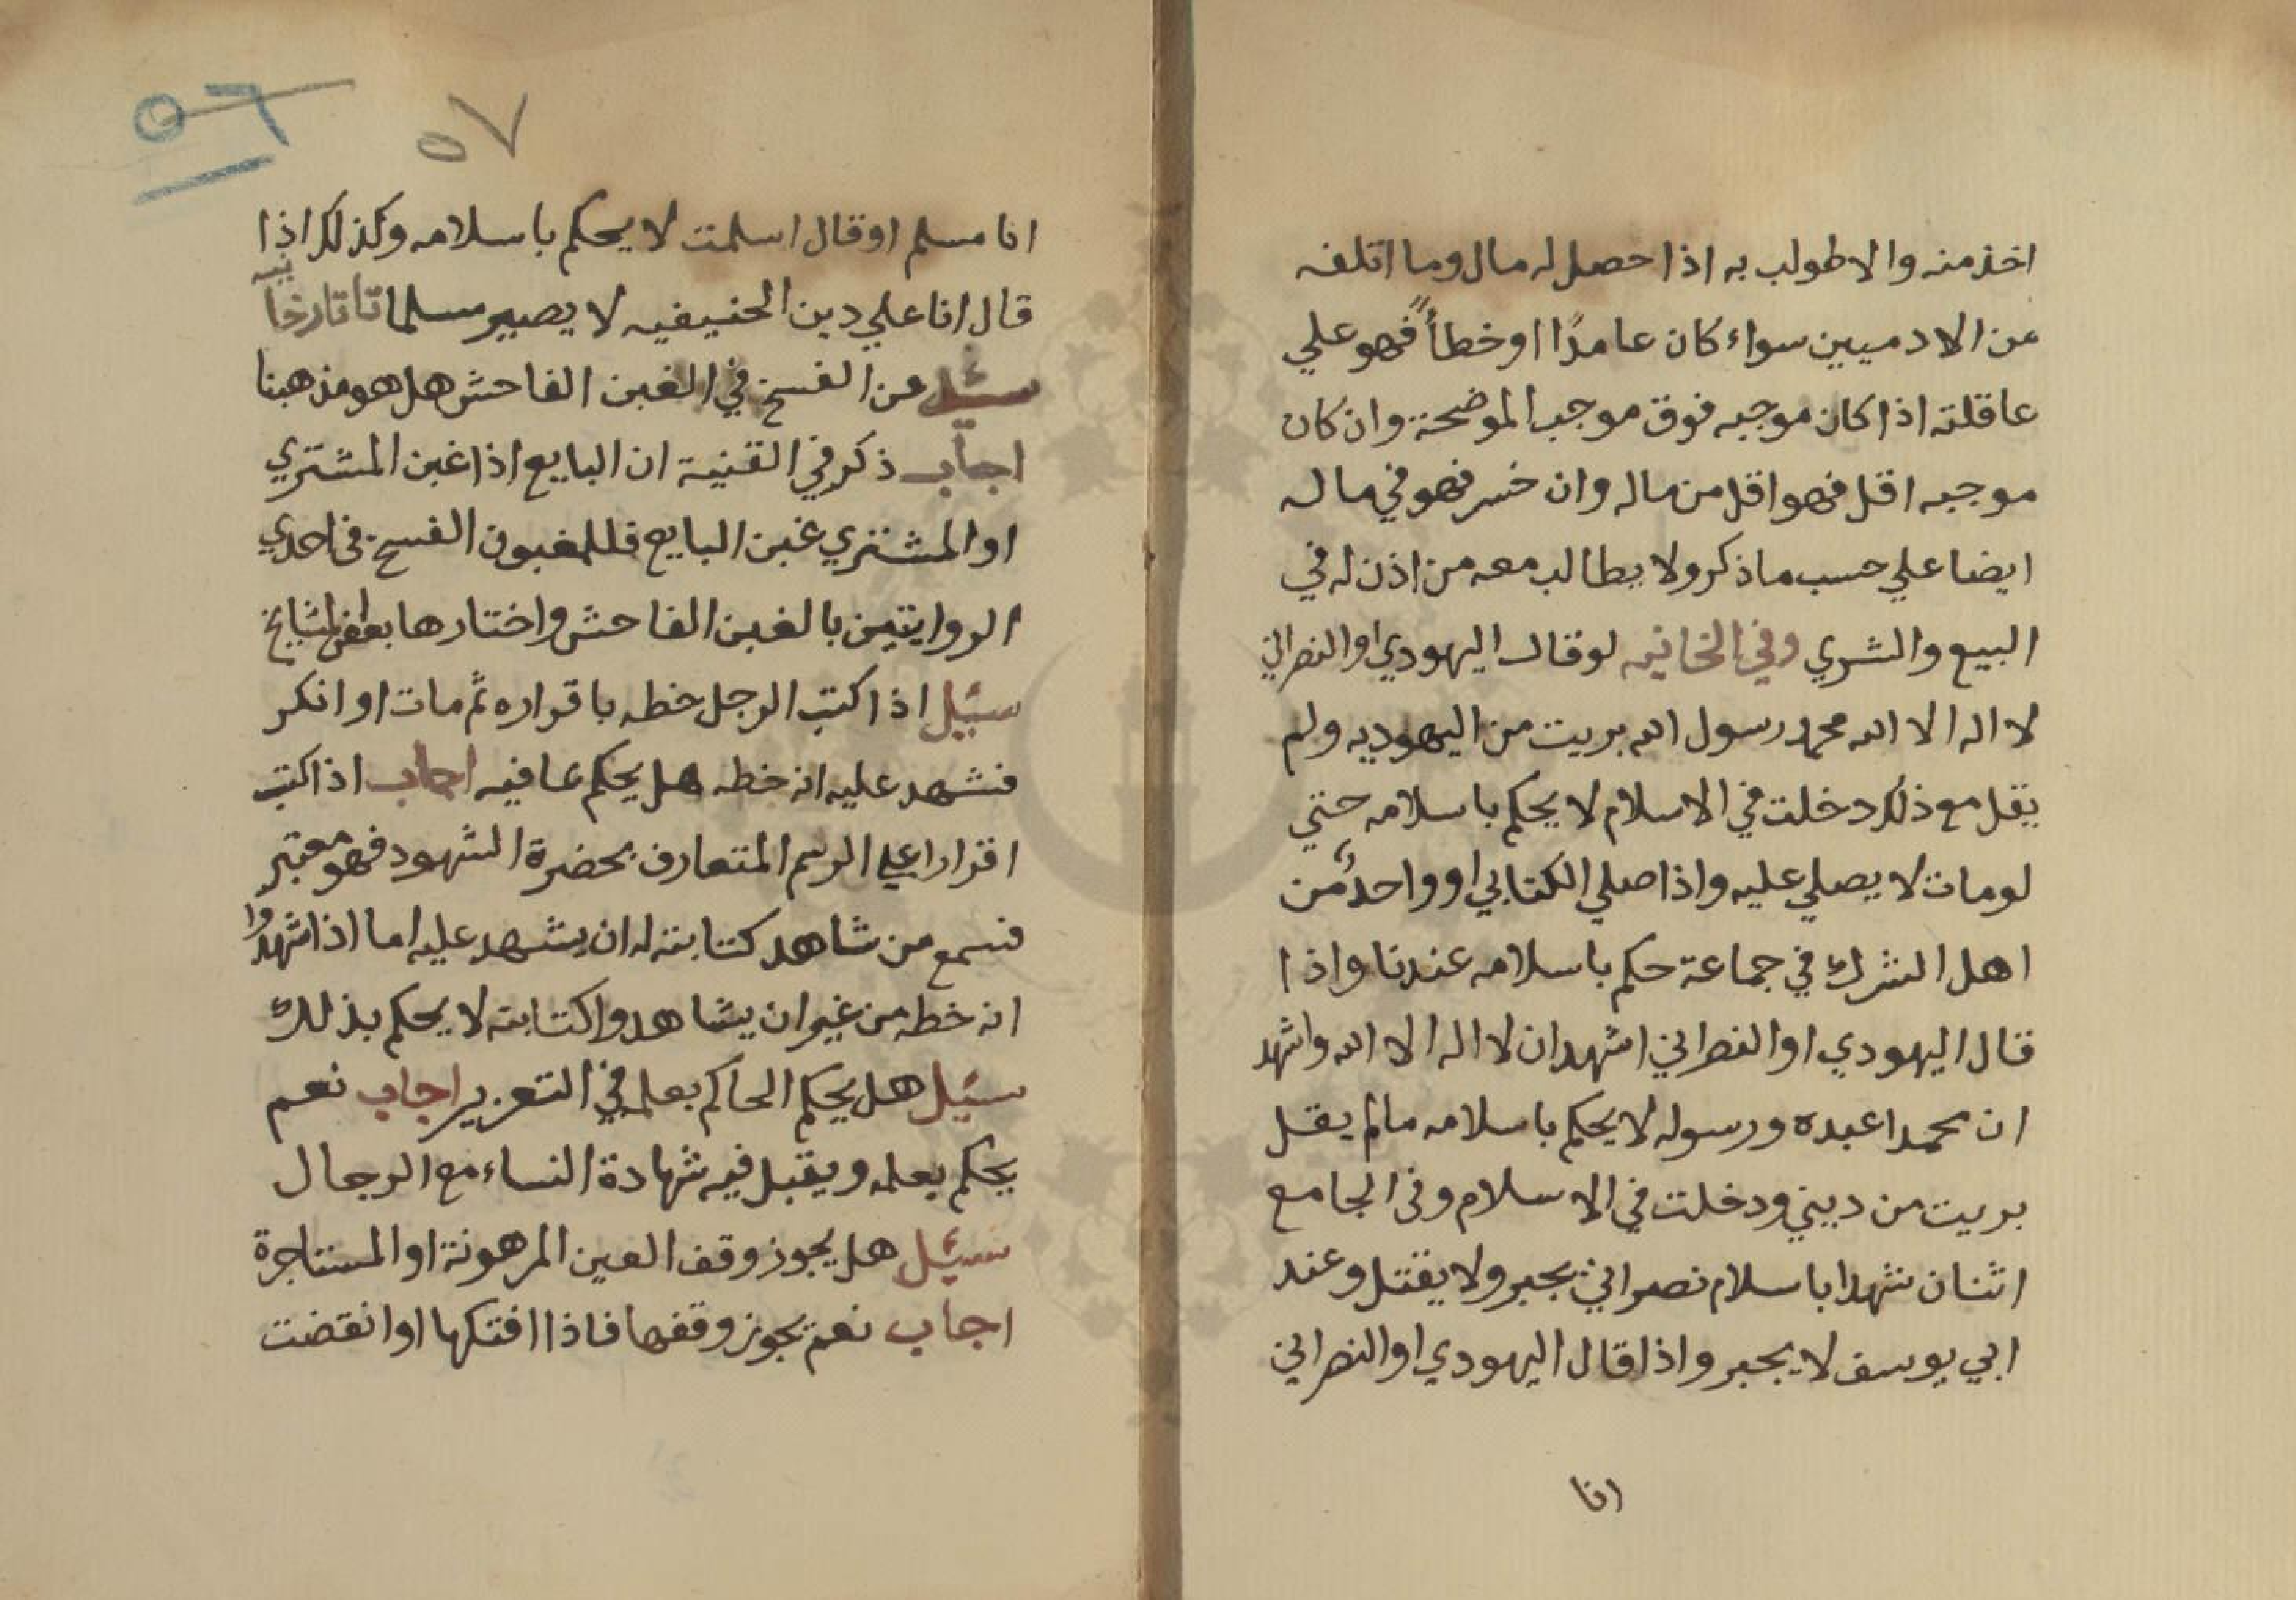 اخذ منه والا طولب به اذا حصل له مال وما اتلفه
من الادميين سواء كان عامدًا او خطأً فهو علي
عاقلته اذا كان موجبه فوق موجب الموضحة وان كان
موجبه اقل فهو اقل من ماله وان خسر فهو في ماله
ايضا علي حسب ما ذكر ولا يطالب معه من اذن له في
البيع والشري وفي الخانيه لو قال اليهودي او النصراني
لا اله الا الله محمد رسول الله بريت من اليهوديه ولم
يقل مع ذلك دخلت في الاسلام لا يحكم باسلامه حتي
لومات لا يصلي عليه واذا صلي الكتابي او واحد من
اهل الشرك في جماعة حكم باسلامه عندنا واذا
قال اليهودي او النصراني اشهد ان لا اله الا الله واشهد
ان محمدا عبده ورسوله لا يحكم باسلامه مالم يقل
بريت من ديني ودخلت في الاسلام وفي الجامع
اثنان شهدا باسلام نصراني يجبر ولا يقتل وعند
ابي يوسف لا يجبر واذا قال اليهودي او النصراني
انا
٥٦
٥٧
انا مسلم او قال اسلمت لا يحكم باسلامه وكذلك اذا
قال انا علي دين الحنيفيه لا يصير مسلما تاتارخانيه
سئل عن الفسخ في الغبن الفاحش هل هو مذهبنا
اجاب ذكر في القنية ان البايع اذا غبن المشتري
او المشتري غبن البايع فللمغبون الفسخ في احدي
الروايتين بالغبن الفاحش واختارها بعض المشايخ
سئيل اذا كتب الرجل خطه باقراره ثم مات او انكر
فشهد عليه انه خطه هل يحكم بما فيه اجاب اذا كتب
اقرارا علي الرسم المتعارف بحضرة الشهود فهو معتبر
فسمع من شاهد كتابته له ان يشهد عليه اما اذا شهدوا
انه خطه من غير ان يشاهدوا كتابته لا يحكم بذلك
سئيل هل يحكم الحاكم بعلمه في التعزير اجاب نعم
يحكم بعلمه ويقبل فيه شهادة النساء مع الرجال
سئيل هل يجوز وقف العين المرهونة او المستاجرة
اجاب نعم يجوز وقفها فاذا افتكها او انقضت